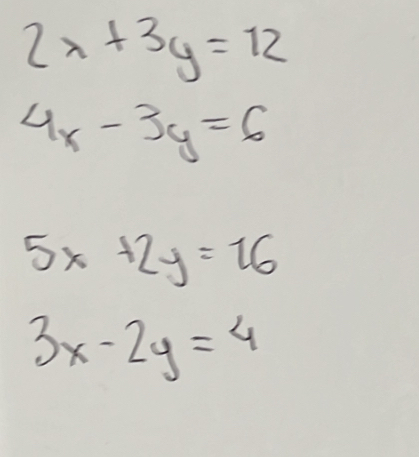 2x + 3y = 12
4x - 3y = 6
5x + 2y = 16
3x - 2y = 4